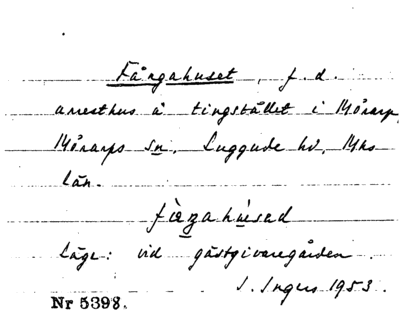 Fångahuset, f.d.
arresthus å tingstället i Mörarp,
Mörarps sn. Luggude hd, Mhs
län.
Läge: vid gästgivaregården.
I. Ingers 1953.
Nr 5398.